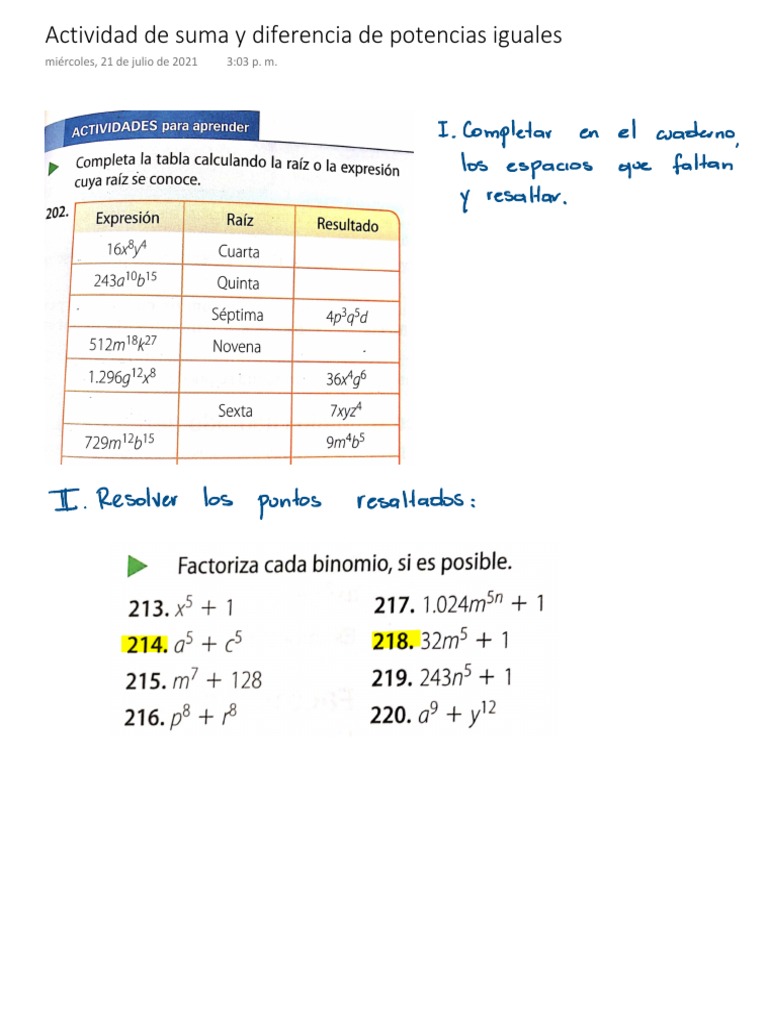 Actividad de suma y diferencia de potencias iguales
miércoles, 21 de julio de 2021 3:03 p. m.
ACTIVIDADES para aprender
Completa la tabla calculando la raíz o la expresión
cuya raíz se conoce.
I. Completar en el cuaderno,
los espacios que faltan
y resaltar.
202. Expresión Raíz Resultado
16x⁸y⁴ Cuarta
243a¹⁰b¹⁵ Quinta
Séptima 4p³q⁵d
512m¹⁸k²⁷ Novena
1.296g¹²x⁸ 36x⁴g⁶
Sexta 7xyz⁴
729m¹²b¹⁵ 9m⁴b⁵
II. Resolver los puntos resaltados:
Factoriza cada binomio, si es posible.
213. x⁵ + 1 217. 1.024m⁵ⁿ + 1
214. a⁵ + c⁵ 218. 32m⁵ + 1
215. m⁷ + 128 219. 243n⁵ + 1
216. p⁸ + r⁸ 220. a⁹ + y¹²